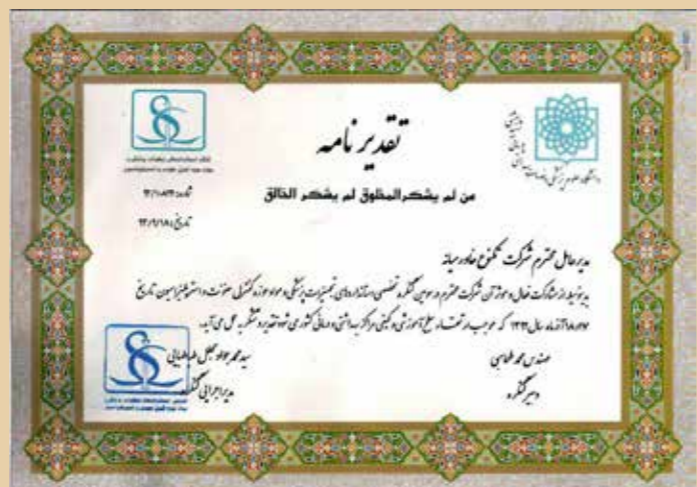 تقدیر نامه
من لم یشکر المخلوق لم یشکر الخالق
تاریخ: ۹۲/۹/۱۸
مدیرعامل محترم شرکت تکنوع خاورمیانه
بدینوسیله از مشارکت فعال و موثر آن شرکت محترم در سومین کنگره تخصصی استانداردهای تجهیزات پزشکی و مواد حوزه کنترل عفونت و استریلیزاسیون تاریخ
آذرماه سال ۱۳۹۲ که موجب ارتقاء سطح آموزشی و کیفی مراکز بهداشتی و درمانی کشور می شود تقدیر و تشکر به عمل می آید.
مهندس محمد طهماسبی
دبیر کنگره
سید محمد جواد جلال طباطبایی
مدیر اجرایی کنگره